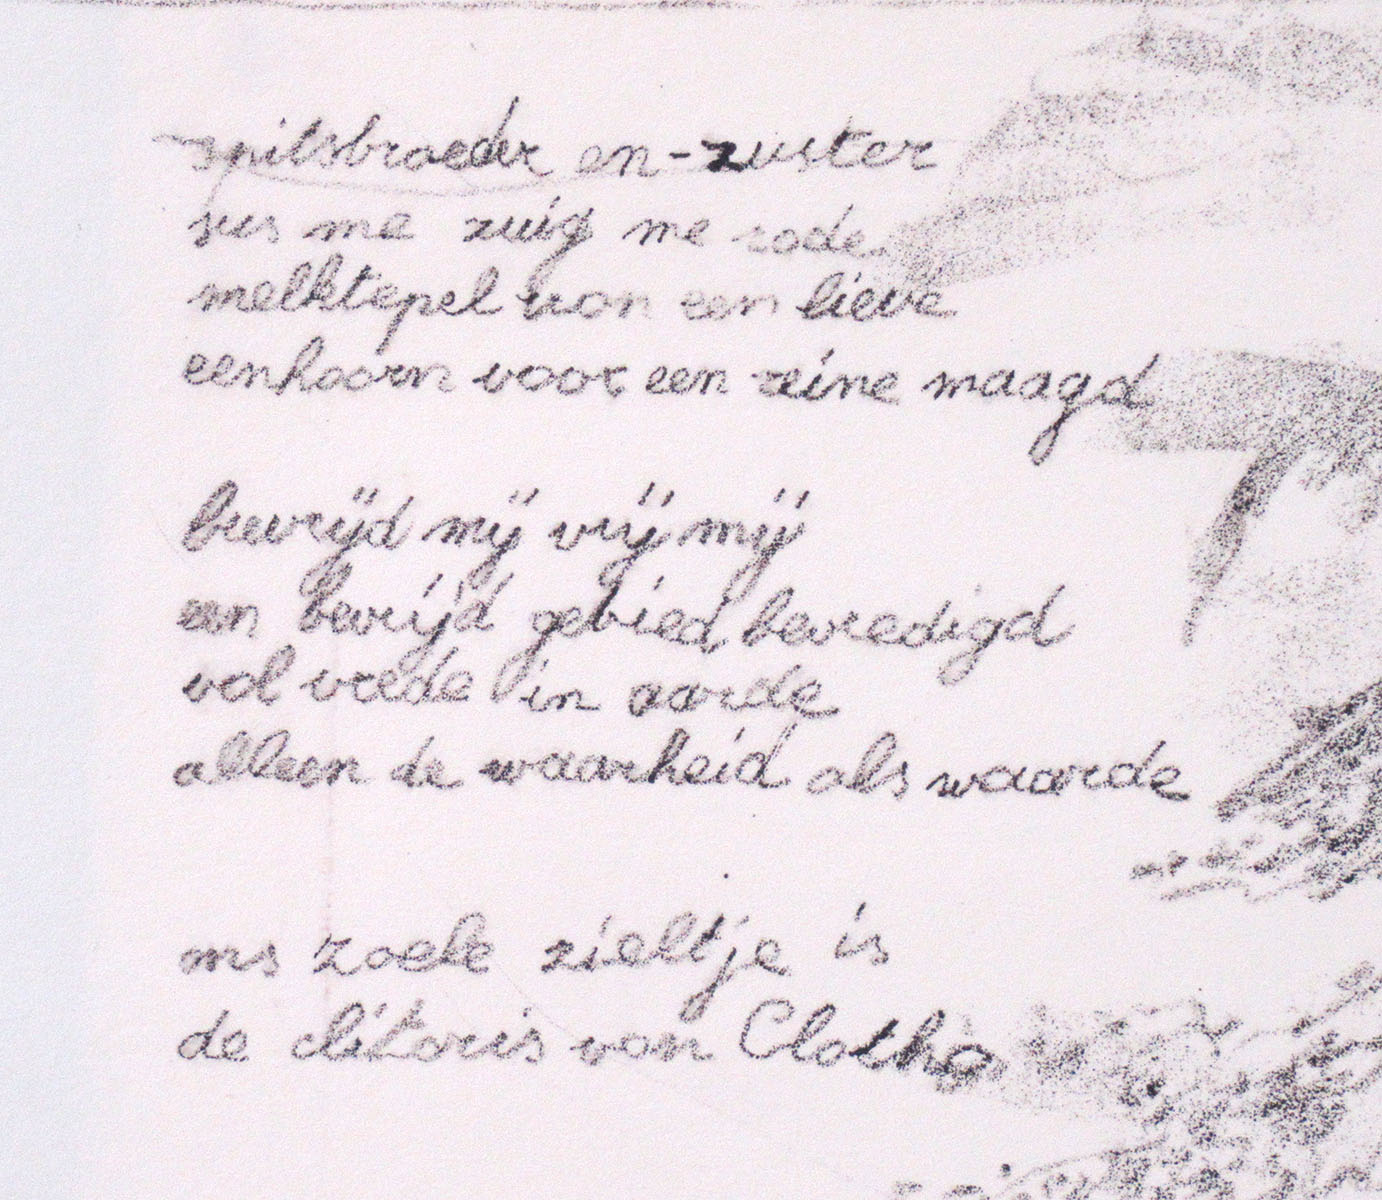 spilsbroeder en -zuster
sus me zuig me rode
melktepel van een lieve
eenhoorn voor een reine maagd
bevrijd mij vrij mij
een bevrijd gebied bevredigd
vol vrede in aarde
alleen de waarheid als waarde
ons zoele zieltje is
de clitoris van Clotho